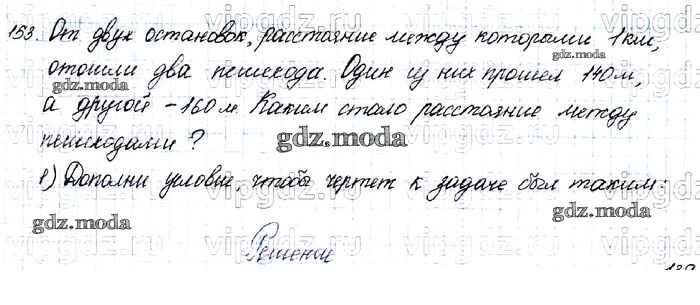 153. От двух остановок, расстояние между которыми 1 км,
отошли два пешехода. Один из них прошел 140 м,
а другой - 160 м. Каким стало расстояние между
пешеходами?
1) Дополни условие, чтобы чертеж к задаче был таким:
Решение